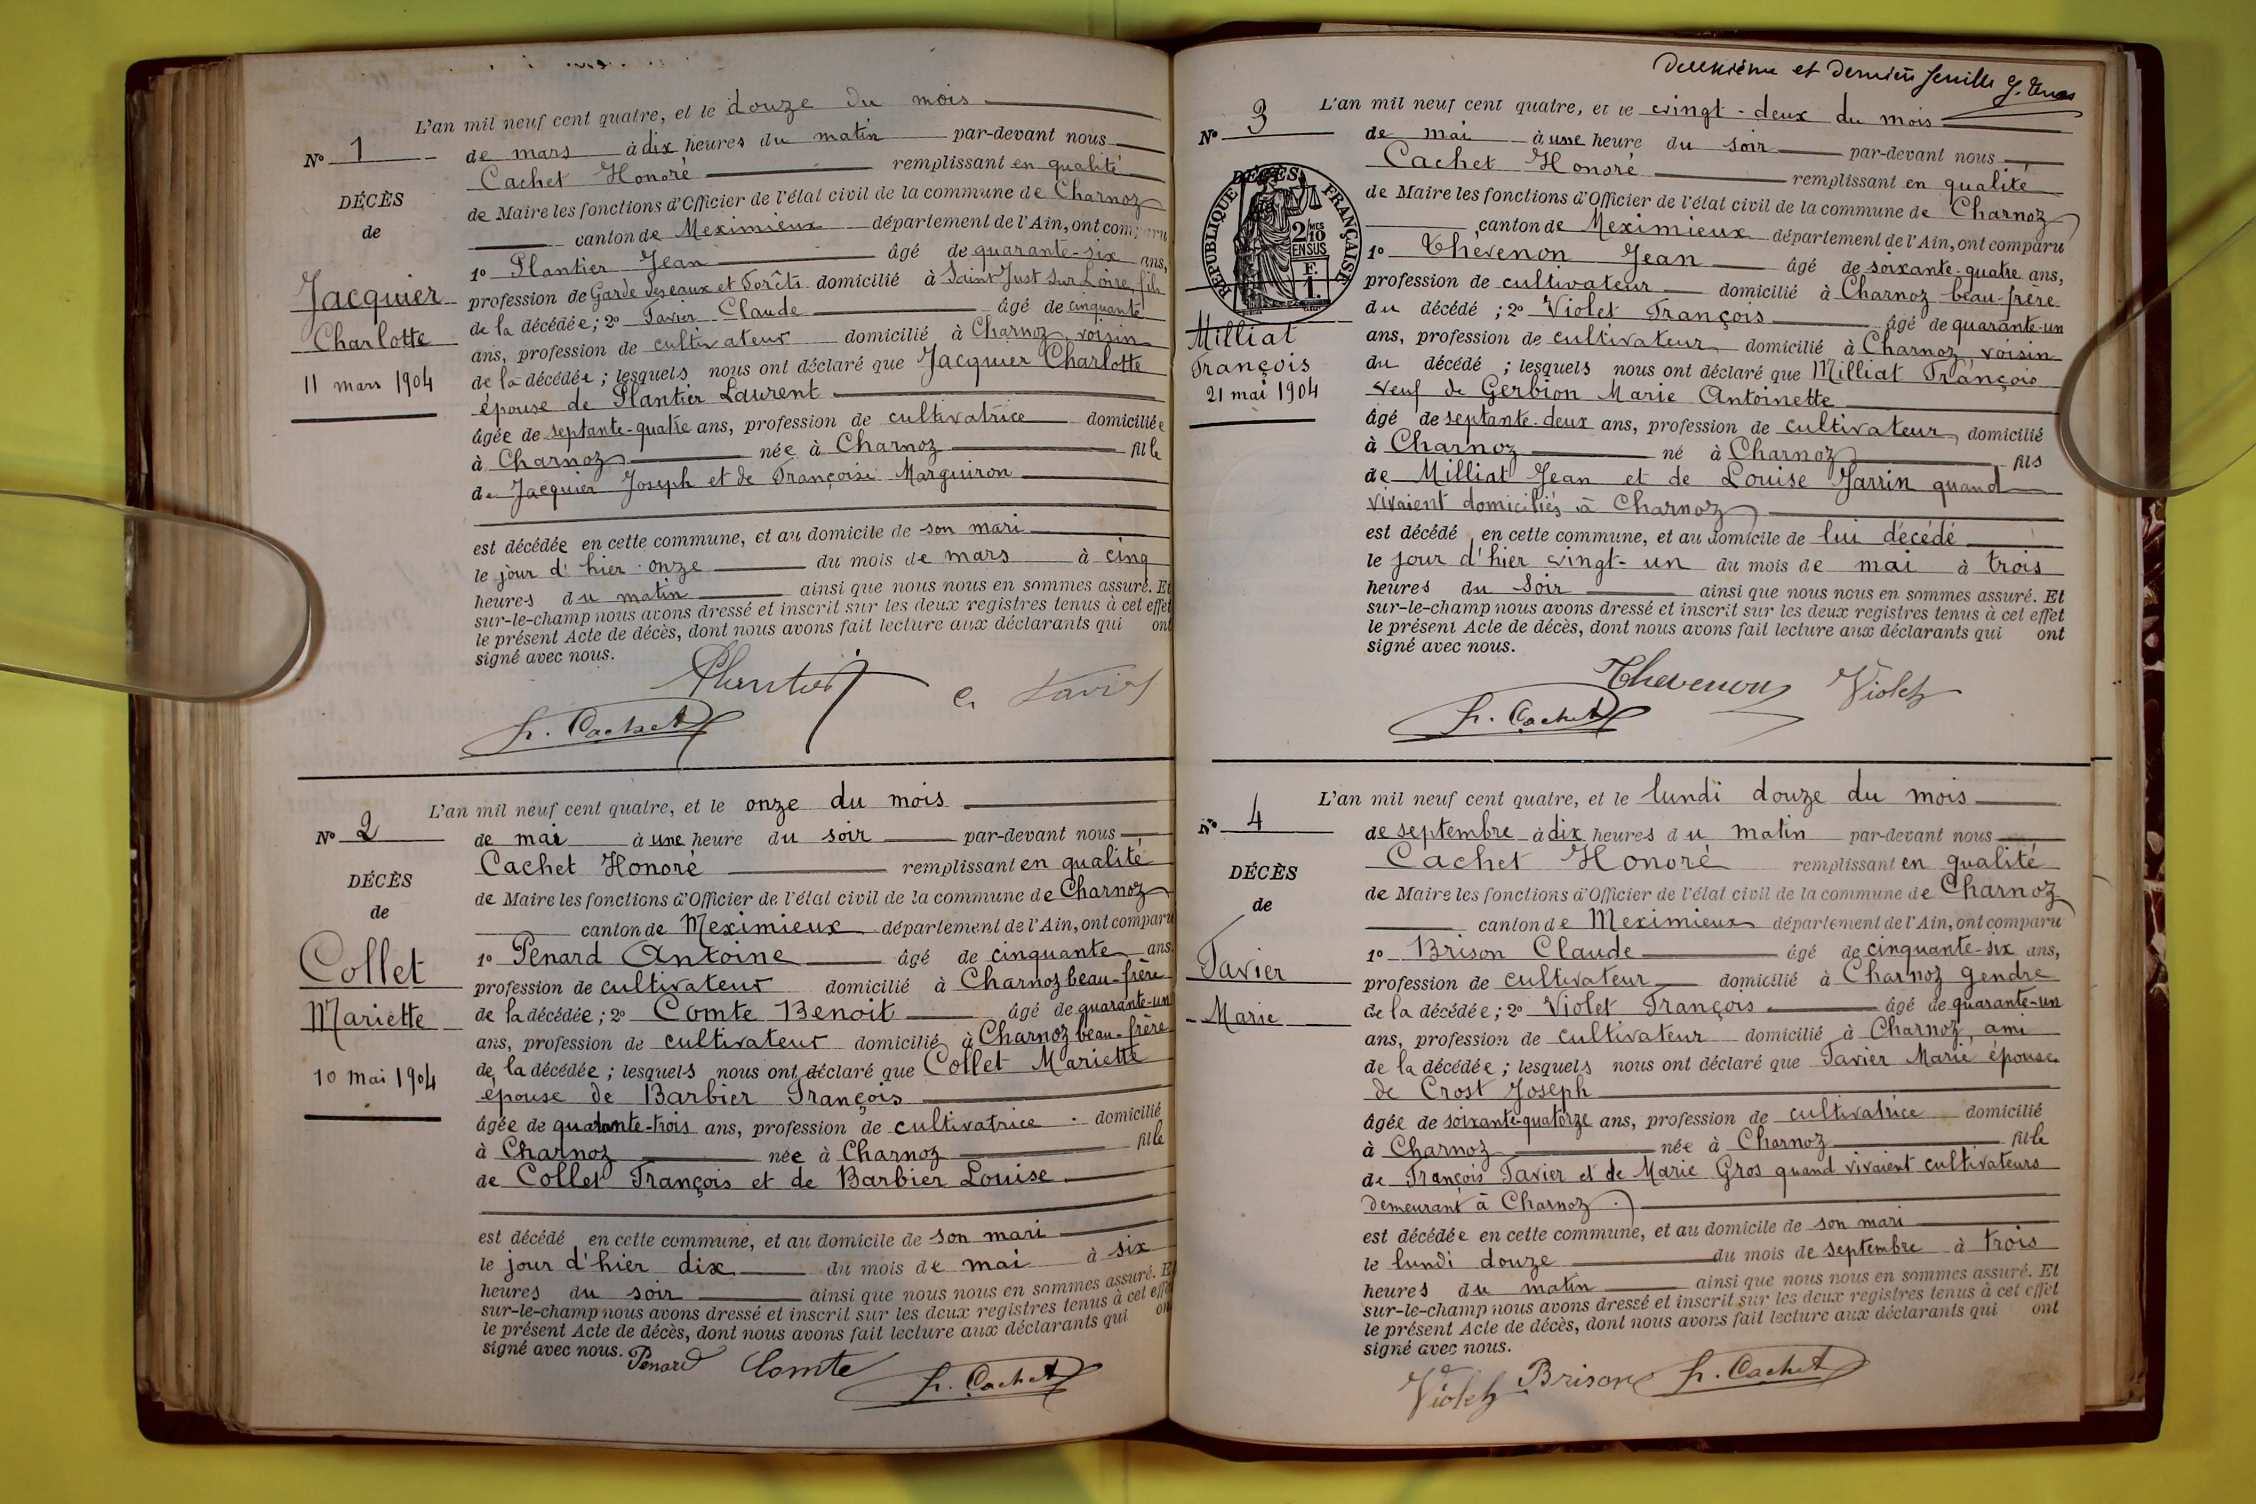 L'an mil neuf cent quatre, et le douze du mois
de mars à dix heures du matin par-devant nous
Nº 1
Cachet Honoré remplissant en qualité
DÉCÈS
de Maire les fonctions d'Officier de l'état civil de la commune de Charnoz
de
canton de Meximieux département de l'Ain, ont comparu
1º Plantier Jean âgé de quarante-six ans,
Jacquier
profession de Garde des eaux et Forêts domicilié à Saint Just sur Loire, fils
de la décédée; 2º Tavier Claude âgé de cinquante
Charlotte
ans, profession de cultivateur domicilié à Charnoz voisin
11 mars 1904
de la décédée; lesquels nous ont déclaré que Jacquier Charlotte
épouse de Plantier Laurent
âgée de septante-quatre ans, profession de cultivatrice domiciliée
à Charnoz née à Charnoz fille
de Jacquier Joseph et de Françoise Marguiron
est décédée en cette commune, et au domicile de son mari
le jour d'hier onze du mois de mars à cinq
heures du matin ainsi que nous nous en sommes assuré. Et
sur-le-champ nous avons dressé et inscrit sur les deux registres tenus à cet effet
le présent Acte de décès, dont nous avons fait lecture aux déclarants qui ont
signé avec nous.
Plantier C. Tavier
h. Cachet
L'an mil neuf cent quatre, et le onze du mois
Nº 2
de mai à une heure du soir par-devant nous
Cachet Honoré remplissant en qualité
DÉCÈS
de Maire les fonctions d'Officier de l'état civil de la commune de Charnoz
de
canton de Meximieux département de l'Ain, ont comparu
1º Penard Antoine âgé de cinquante ans,
Collet
profession de cultivateur domicilié à Charnoz beau-frère
de la décédée; 2º Comte Benoit âgé de quarante-un
Mariette
ans, profession de cultivateur domicilié à Charnoz beau-frère
10 mai 1904
de la décédée; lesquels nous ont déclaré que Collet Mariette
épouse de Barbier François
âgée de quarante-trois ans, profession de cultivatrice domicilié
à Charnoz née à Charnoz fille
de Collet François et de Barbier Louise
est décédé en cette commune, et au domicile de son mari
le jour d'hier dix du mois de mai à six
heures du soir ainsi que nous nous en sommes assuré. Et
sur-le-champ nous avons dressé et inscrit sur les deux registres tenus à cet effet
le présent Acte de décès, dont nous avons fait lecture aux déclarants qui ont
signé avec nous.
Penard Comte h. Cachet
Deuxième et dernière feuille
L'an mil neuf cent quatre, et le vingt-deux du mois
Nº 3
de mai à une heure du soir par-devant nous
Cachet Honoré remplissant en qualité
DÉCÈS
RÉPUBLIQUE FRANÇAISE
2/10
EN SUS
F.
1.
de Maire les fonctions d'Officier de l'état civil de la commune de Charnoz
canton de Meximieux département de l'Ain, ont comparu
1º Thevenon Jean âgé de soixante-quatre ans,
profession de cultivateur domicilié à Charnoz beau-frère
du décédé; 2º Violet François âgé de quarante-un
Milliat
ans, profession de cultivateur domicilié à Charnoz, voisin
François
du décédé; lesquels nous ont déclaré que Milliat François
21 mai 1904
veuf de Gerbion Marie Antoinette
âgé de septante-deux ans, profession de cultivateur domicilié
à Charnoz né à Charnoz fils
de Milliat Jean et de Louise Jarrin quand
vivaient domiciliés à Charnoz
est décédé en cette commune, et au domicile de lui décédé
le jour d'hier vingt-un du mois de mai à trois
heures du soir ainsi que nous nous en sommes assuré. Et
sur-le-champ nous avons dressé et inscrit sur les deux registres tenus à cet effet
le présent Acte de décès, dont nous avons fait lecture aux déclarants qui ont
signé avec nous.
Thevenon Violet
h. Cachet
L'an mil neuf cent quatre, et le lundi douze du mois
Nº 4
de septembre à dix heures du matin par-devant nous
Cachet Honoré remplissant en qualité
DÉCÈS
de Maire les fonctions d'Officier de l'état civil de la commune de Charnoz
de
canton de Meximieux département de l'Ain, ont comparu
1º Brison Claude âgé de cinquante-six ans,
Tavier
profession de cultivateur domicilié à Charnoz gendre
de la décédée; 2º Violet François âgé de quarante-un
Marie
ans, profession de cultivateur domicilié à Charnoz, ami
de la décédée; lesquels nous ont déclaré que Tavier Marie, épouse
de Crost Joseph
âgée de soixante-quatorze ans, profession de cultivatrice domicilié
à Charnoz née à Charnoz fille
de François Tavier et de Marie Gros quand vivaient cultivateurs
demeurant à Charnoz
est décédée en cette commune, et au domicile de son mari
le lundi douze du mois de septembre à trois
heures du matin ainsi que nous nous en sommes assuré. Et
sur-le-champ nous avons dressé et inscrit sur les deux registres tenus à cet effet
le présent Acte de décès, dont nous avons fait lecture aux déclarants qui ont
signé avec nous.
Violet Brison h. Cachet